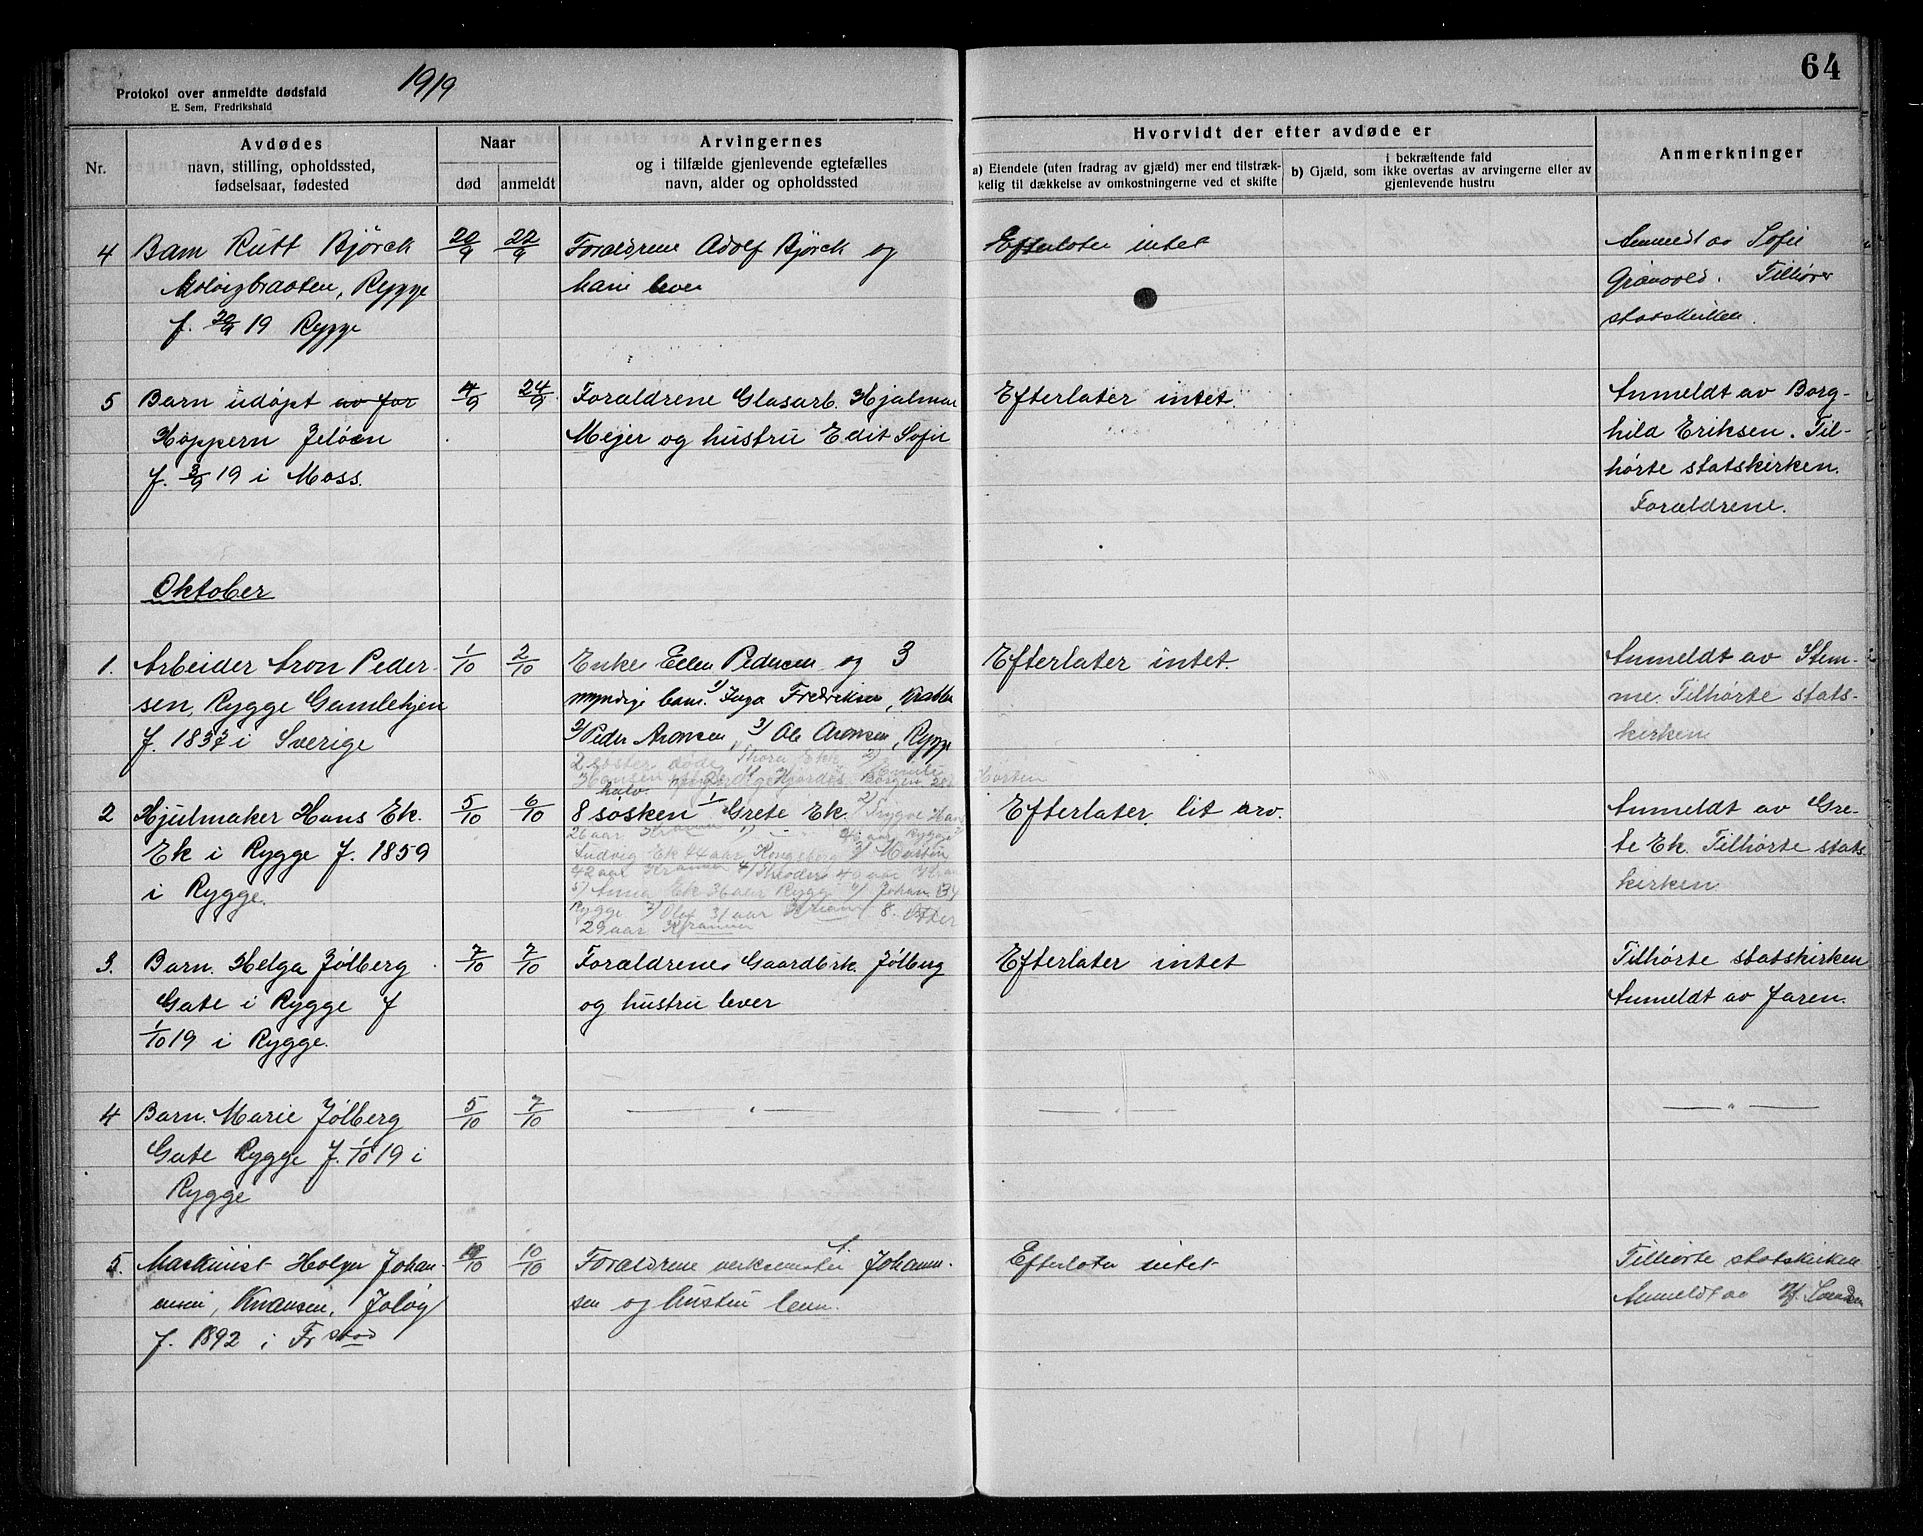 64
Protokol over anmeldte dødsfald
E. Sem, Fredrikshald
1919
Nr.
Avdødes
navn, stilling, opholdssted,
fødselsaar, fødested
Naar
død
anmeldt
Arvingernes
og i tilfælde gjenlevende egtefælles
navn, alder og opholdssted
Hvorvidt der efter avdøde er
a) Eiendele (uten fradrag av gjæld) mer end tilstræk-
kelig til dækkelse av omkostningerne ved et skifte
i bekræftende fald
b) Gjæld, som ikke overtas av arvingerne eller av
gjenlevende hustru
Anmerkninger
4
Barn Rutt Bjørck
Rygge
f. 20/9 19 Rygge
20/9
22/9
Forældrene Adolf Bjørck og
lever
Efterlater intet
Anmeldt av Sofie
Tilhører
statskirken.
5
Barn udøpt av for
Høppern Jeløen
f. 3/9 19 i Moss.
4/9
24/9
Forældrene Glasarb. Hjalmar
Mejer og hustru Edit Sofie
Efterlater intet.
Anmeldt av Borg-
hild Eriksen. Til-
hørte statskirken.
Forældrene.
Oktober
1.
Arbeider Aron Peder-
sen, Rygge Gamlehjen
f. 1837 i Sverige
1/10
2/10
Enke Ellen Pedersen og 3
myndige barn. 1) Inga Fredriksen,
2) Peder Aronsen, 3) Ole Aronsen, Rygge
Efterlater intet.
Anmeldt av Stem-
me. Tilhørte stats-
kirken
2 søster døde Thora Ek
Hansen
Horten
halv.
2
Hjulmaker Hans Ek.
Ek i Rygge f. 1859
i Rygge.
5/10
6/10
8 søsken 1/ Grete Ek. 2) Trygve Hans
26 aar
Ludvig Ek 44 aar Kongsberg 3/ Martin
42 aar
5) Anna Ek 36 aar Rygge 6/ Johan 34
Rygge 7/ Olaf 31 aar 8.
29 aar
Efterlater lit arv.
Anmeldt av Gre-
te Ek. Tilhørte stats
kirken
3.
Barn. Helga Jølberg
Gate i Rygge f
1/10 19 i Rygge.
7/10
7/10
Forældrene Gaardbrk. Jølberg
og hustru lever
Efterlater intet
Tilhørte statskirken
Anmeldt av Jaren.
4
Barn. Marie Jølberg
Gate Rygge f. 1/10 19 i
Rygge
5/10
7/10
— „ —
— „ —
— „ —
5.
Maskinist Holger Johan-
nsen, Knausen, Jeløy
f. 1892 i Frstad
10/10
10/10
Forældrene verksmester Johann-
sen og hustru lever.
Efterlater intet
Tilhørte statskirken
Anmeldt av